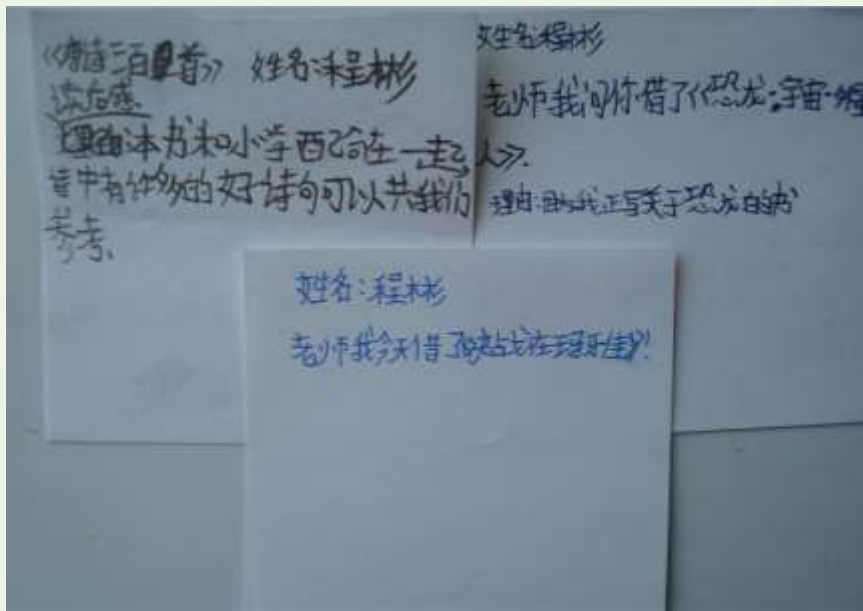 《唐诗三百首》 姓名:程彬
读后感
理由:本书和小学西合在一起,
里中有许多的好诗句可以共我们
参考、
姓名:程彬
老师我问你借了《恐龙;宇宙·
人》.
理由:因为我正写关于恐龙的书
姓名:程彬
老师我今天借了